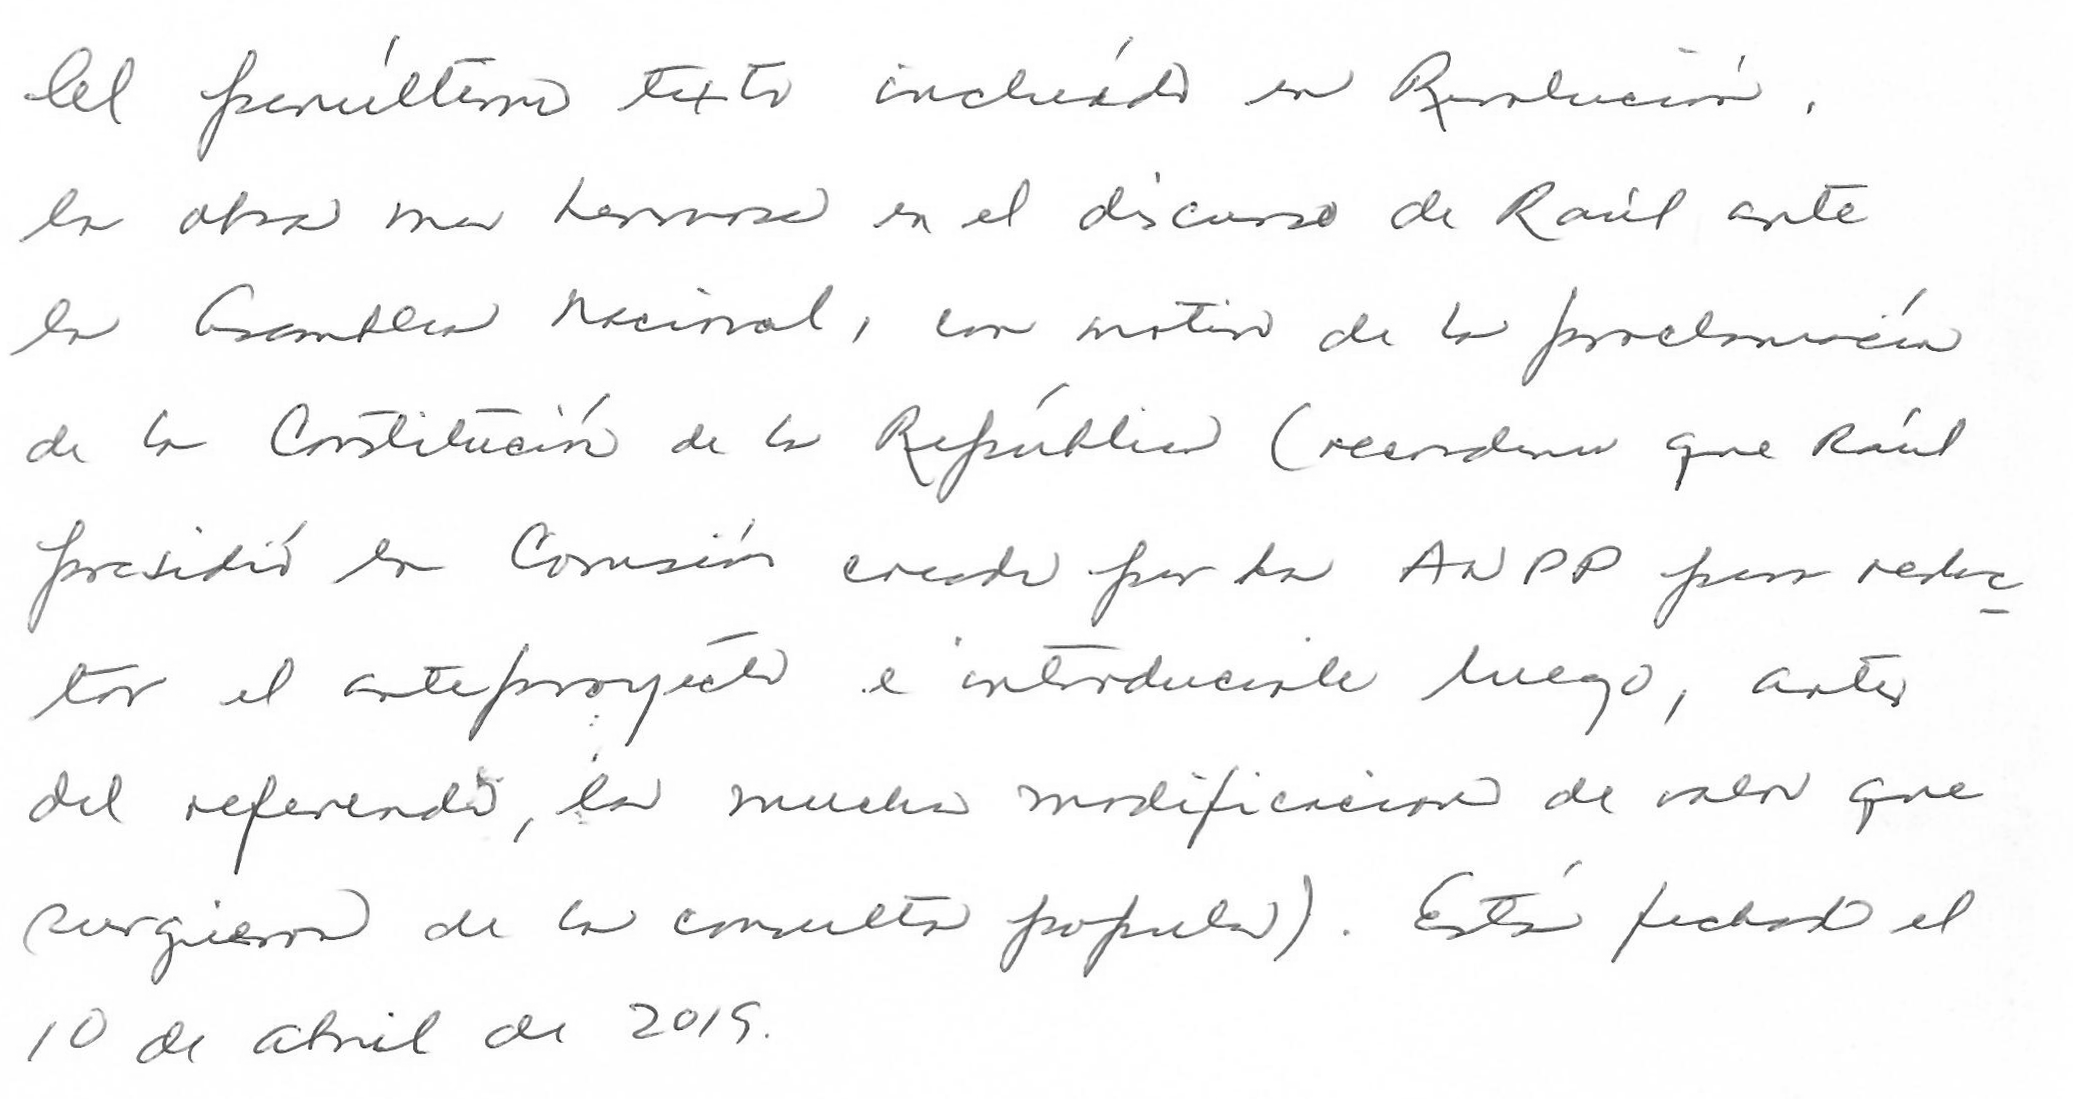 El penúltimo texto incluído en Revolución,
la obra mas hermosa en el discurso de Raúl ante
la Asamblea Nacional, con motivo de la proclamación
de la Constitución de la República (recordemos que Raúl
presidió la Comisión creada por la ANPP para redac
tar el anteproyecto e introducirle luego, antes
del referendo, las muchas modificaciones de valor que
surgieron de la consulta popular). Está fechado el
10 de abril de 2019.